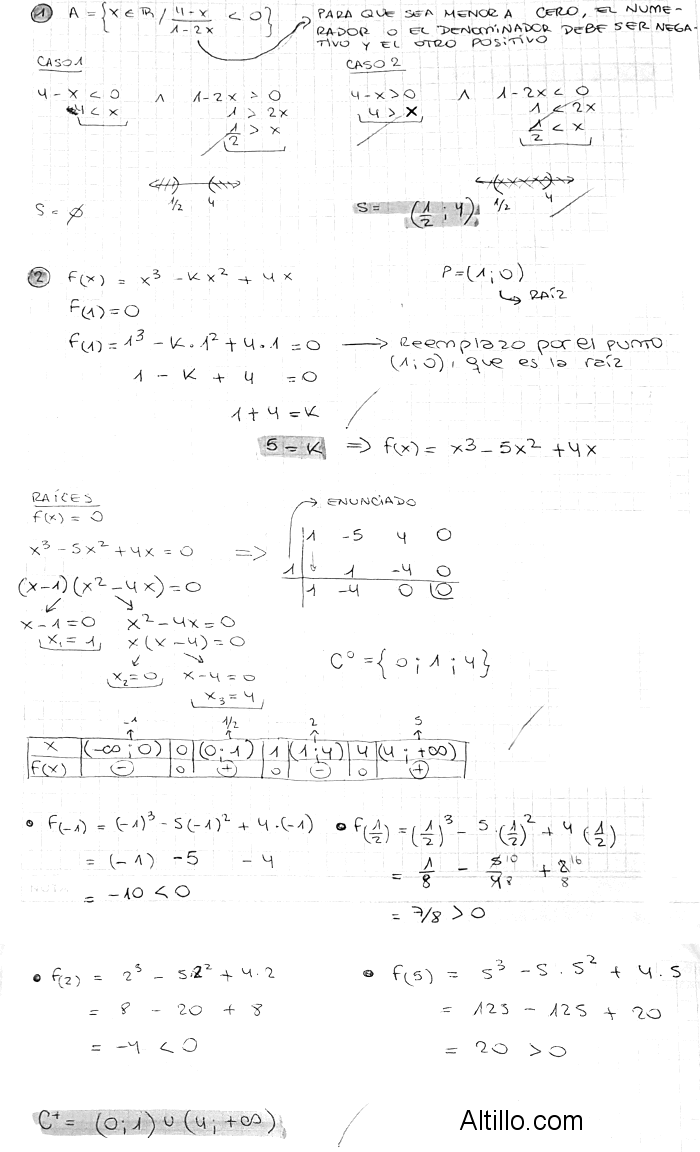 ① A = {x ∈ ℝ / (4-x)/(1-2x) < 0}
PARA QUE SEA MENOR A CERO, EL NUME-
RADOR O EL DENOMINADOR DEBE SER NEGA-
TIVO Y EL OTRO POSITIVO
CASO 1
4-x < 0 ∧ 1-2x > 0
4 < x 1 > 2x
1/2 > x
1/2 4
S = ∅
CASO 2
4-x>0 ∧ 1-2x < 0
4 > x 1 < 2x
1/2 < x
1/2 4
S = (1/2 ; 4)
② f(x) = x³ - Kx² + 4x P=(1;0)
↳ RAÍZ
f(1)=0
f(1)=1³ - K.1² + 4.1 = 0 → Reemplazo por el punto
(1;0), que es la raíz
1 - K + 4 = 0
1+4 = K
5 = K ⇒ f(x) = x³ - 5x² + 4x
RAÍCES
f(x) = 0
x³ - 5x² + 4x = 0 ⇒
(x-1)(x² - 4x) = 0
x-1=0 x² - 4x = 0
x₁ = 1 x(x-4) = 0
x₂=0 x-4=0
x₃=4
→ ENUNCIADO
1 -5 4 0
1 1 -4 0
1 -4 0 0
C° = {0;1;4}
-1 1/2 2 5
x (-∞;0) 0 (0;1) 1 (1;4) 4 (4;+∞)
f(x) - 0 + 0 - 0 +
• f(-1) = (-1)³ - 5(-1)² + 4.(-1)
= (-1) -5 - 4
= -10 < 0
• f(1/2) = (1/2)³ - 5.(1/2)² + 4(1/2)
= 1/8 - 5 10/4 8 + 2 16/8
= 7/8 > 0
• f(2) = 2³ - 5.2² + 4.2
= 8 - 20 + 8
= -4 < 0
• f(5) = 5³ - 5.5² + 4.5
= 125 - 125 + 20
= 20 > 0
C⁺ = (0;1) ∪ (4;+∞)
Altillo.com